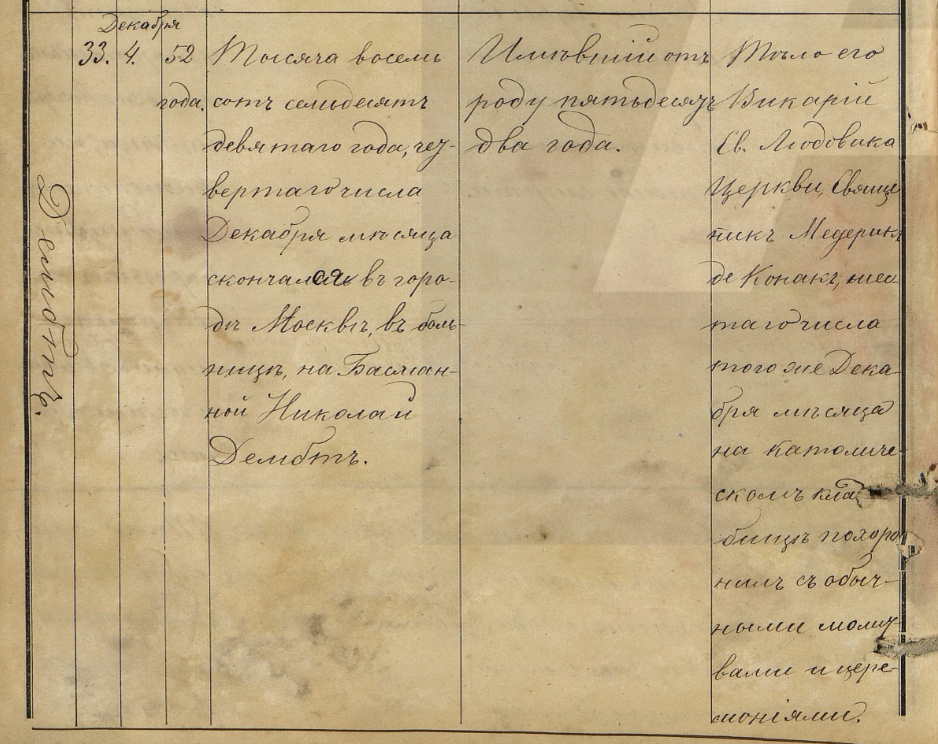 Декабря
33. 4. 52
года.
Дембтъ.
Тысяча восемь
сотъ семьдесятъ
девятаго года, чет-
вертаго числа
Декабря мѣсяца
скончался въ горо-
дѣ Москвѣ, въ боль-
ницѣ, на Басман-
ной Николай
Дембтъ.
Имѣвшій отъ
роду пятьдесятъ
два года.
Тѣло его
Викарій
Св. Людовика
Церкви, Свящe
никъ Медерикъ
де Конакъ, шес
таго числа
того же Дека
бря мѣсяца
на католиче-
скомъ кла
бищѣ похоро
нилъ съ обыч-
ными молит
вами и цере-
моніями.